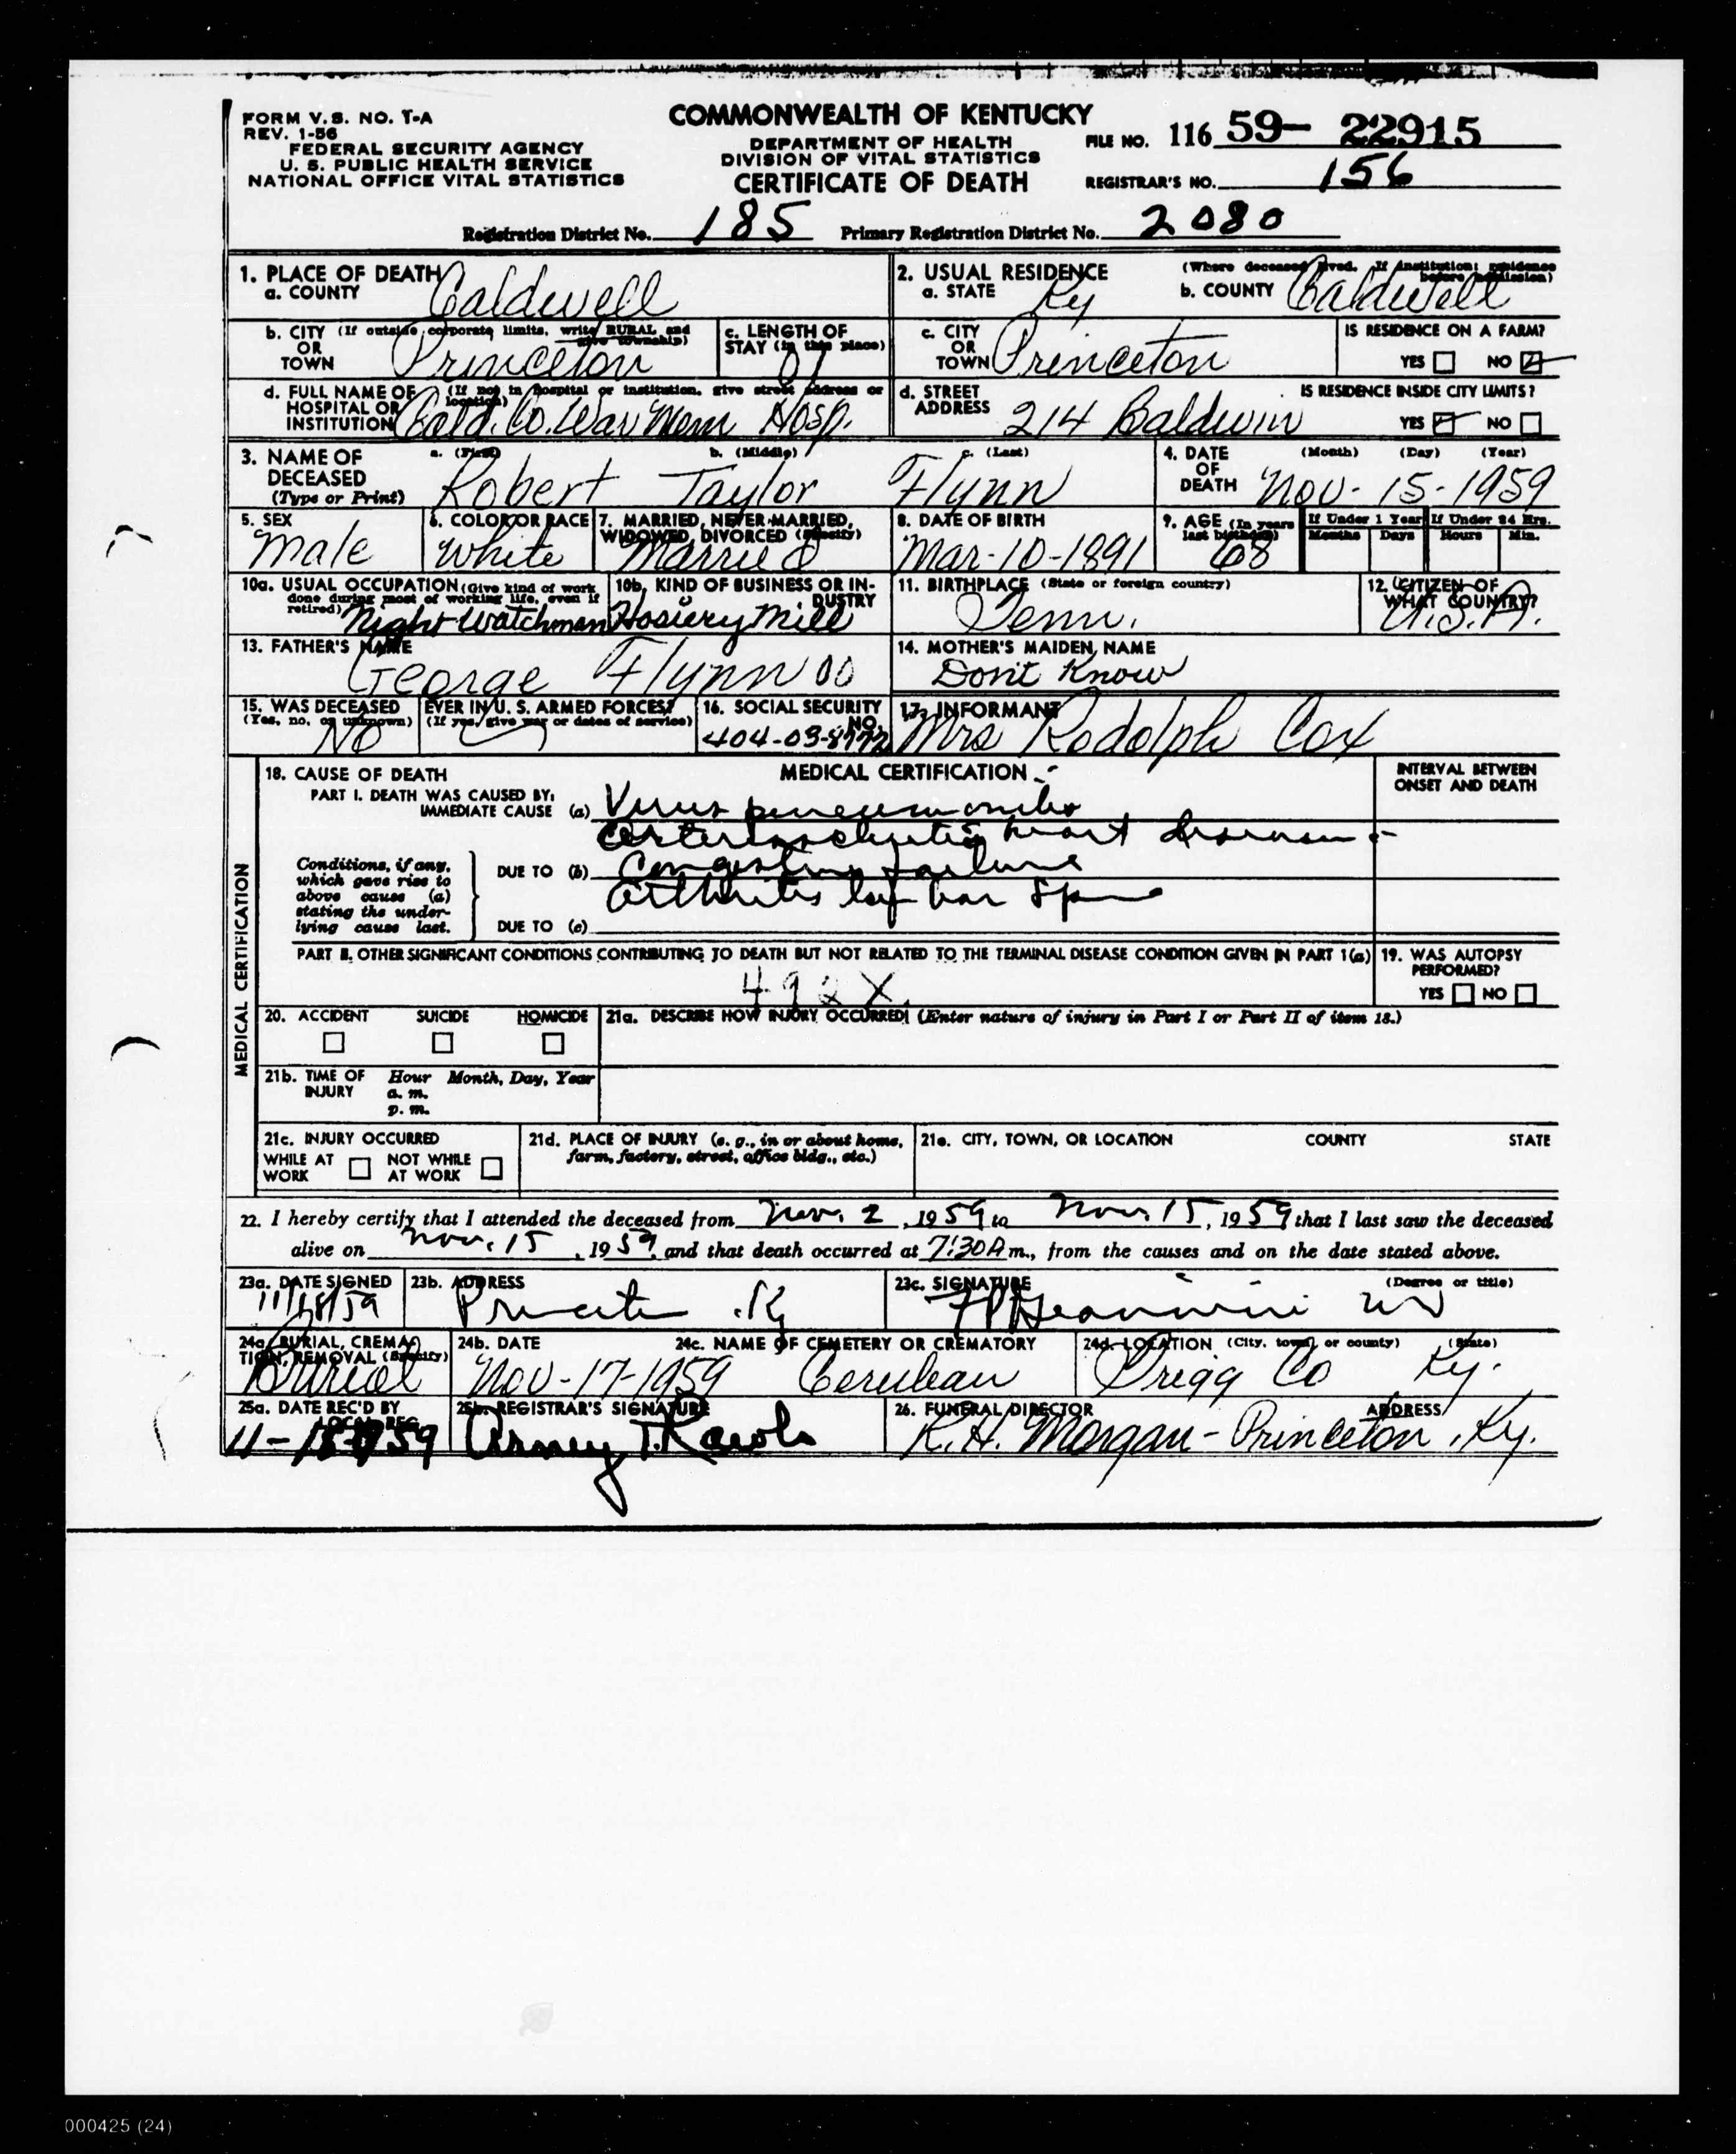 FORM V.S. NO. 1-A
REV. 1-56
FEDERAL SECURITY AGENCY
U. S. PUBLIC HEALTH SERVICE
NATIONAL OFFICE VITAL STATISTICS
COMMONWEALTH OF KENTUCKY
DEPARTMENT OF HEALTH
DIVISION OF VITAL STATISTICS
CERTIFICATE OF DEATH
FILE NO. 116 59- 22915
REGISTRAR'S NO. 156
Registration District No. 185 Primary Registration District No. 2080
1. PLACE OF DEATH
a. COUNTY Caldwell
2. USUAL RESIDENCE (Where deceased lived. If institution: residence before admission)
a. STATE Ky b. COUNTY Caldwell
b. CITY (If outside corporate limits, write RURAL and give township)
OR
TOWN Princeton
c. LENGTH OF
STAY (in this place)
c. CITY
OR
TOWN Princeton
IS RESIDENCE ON A FARM?
YES NO
d. FULL NAME OF (If not in hospital or institution, give street address or location)
HOSPITAL OR
INSTITUTION Cald. Co. War Mem Hosp.
d. STREET
ADDRESS 214 Baldwin
IS RESIDENCE INSIDE CITY LIMITS?
YES NO
3. NAME OF
DECEASED
(Type or Print)
a. (First) b. (Middle) c. (Last)
Robert Taylor Flynn
4. DATE
OF
DEATH
(Month) (Day) (Year)
Nov- 15-1959
5. SEX
Male
6. COLOR OR RACE
White
7. MARRIED, NEVER MARRIED,
WIDOWED, DIVORCED (Specify)
Married
8. DATE OF BIRTH
Mar-10-1891
9. AGE (In years
last birthday)
68
If Under 1 Year If Under 24 Hrs.
Months Days Hours Min.
10a. USUAL OCCUPATION (Give kind of work
done during most of working life, even if
retired) Night Watchman
10b. KIND OF BUSINESS OR IN-
DUSTRY
Hosiery Mill
11. BIRTHPLACE (State or foreign country)
Tenn.
12. CITIZEN OF
WHAT COUNTRY?
U.S.A.
13. FATHER'S NAME
George Flynn
14. MOTHER'S MAIDEN NAME
Don't Know
15. WAS DECEASED EVER IN U. S. ARMED FORCES?
(Yes, no, or unknown) (If yes, give war or dates of service)
No
16. SOCIAL SECURITY
NO.
404-03-
17. INFORMANT
Mrs Rodolph Cox
MEDICAL CERTIFICATION
18. CAUSE OF DEATH
MEDICAL CERTIFICATION
INTERVAL BETWEEN
ONSET AND DEATH
PART I. DEATH WAS CAUSED BY:
IMMEDIATE CAUSE (a) Virus pneumonitis
Arteriosclerotic heart disease
Conditions, if any,
which gave rise to
above cause (a)
stating the under-
lying cause last.
DUE TO (b) Congestive failure
Arthritis lumbar Spine
DUE TO (c)
PART II. OTHER SIGNIFICANT CONDITIONS CONTRIBUTING TO DEATH BUT NOT RELATED TO THE TERMINAL DISEASE CONDITION GIVEN IN PART 1(a)
492X
19. WAS AUTOPSY
PERFORMED?
YES NO
20. ACCIDENT SUICIDE HOMICIDE
21a. DESCRIBE HOW INJURY OCCURRED! (Enter nature of injury in Part I or Part II of item 18.)
21b. TIME OF
INJURY
Hour Month, Day, Year
a. m.
p. m.
21c. INJURY OCCURRED
WHILE AT
WORK
NOT WHILE
AT WORK
21d. PLACE OF INJURY (e. g., in or about home,
farm, factory, street, office bldg., etc.)
21e. CITY, TOWN, OR LOCATION COUNTY STATE
22. I hereby certify that I attended the deceased from Nov. 2, 1959 to Nov. 15, 1959 that I last saw the deceased
alive on Nov. 15, 1959, and that death occurred at 7:30 A m., from the causes and on the date stated above.
23a. DATE SIGNED
11/18/59
23b. ADDRESS
Princeton, Ky
23c. SIGNATURE (Degree or title)
MD
24a. BURIAL, CREMA-
TION, REMOVAL (Specify)
Burial
24b. DATE
Nov-17-1959
24c. NAME OF CEMETERY OR CREMATORY
Cerulean
24d. LOCATION (City, town, or county) (State)
Trigg Co Ky.
25a. DATE REC'D BY
LOCAL REG.
25b. REGISTRAR'S SIGNATURE
26. FUNERAL DIRECTOR ADDRESS
K.H. Morgan - Princeton, Ky.
000425 (24)